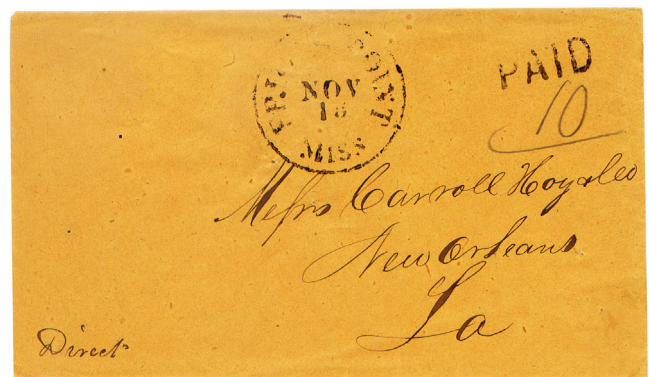 POINT
NOV
MISS
PAID
10
Messrs Carroll Hoy & Co
New Orleans
La
Direct